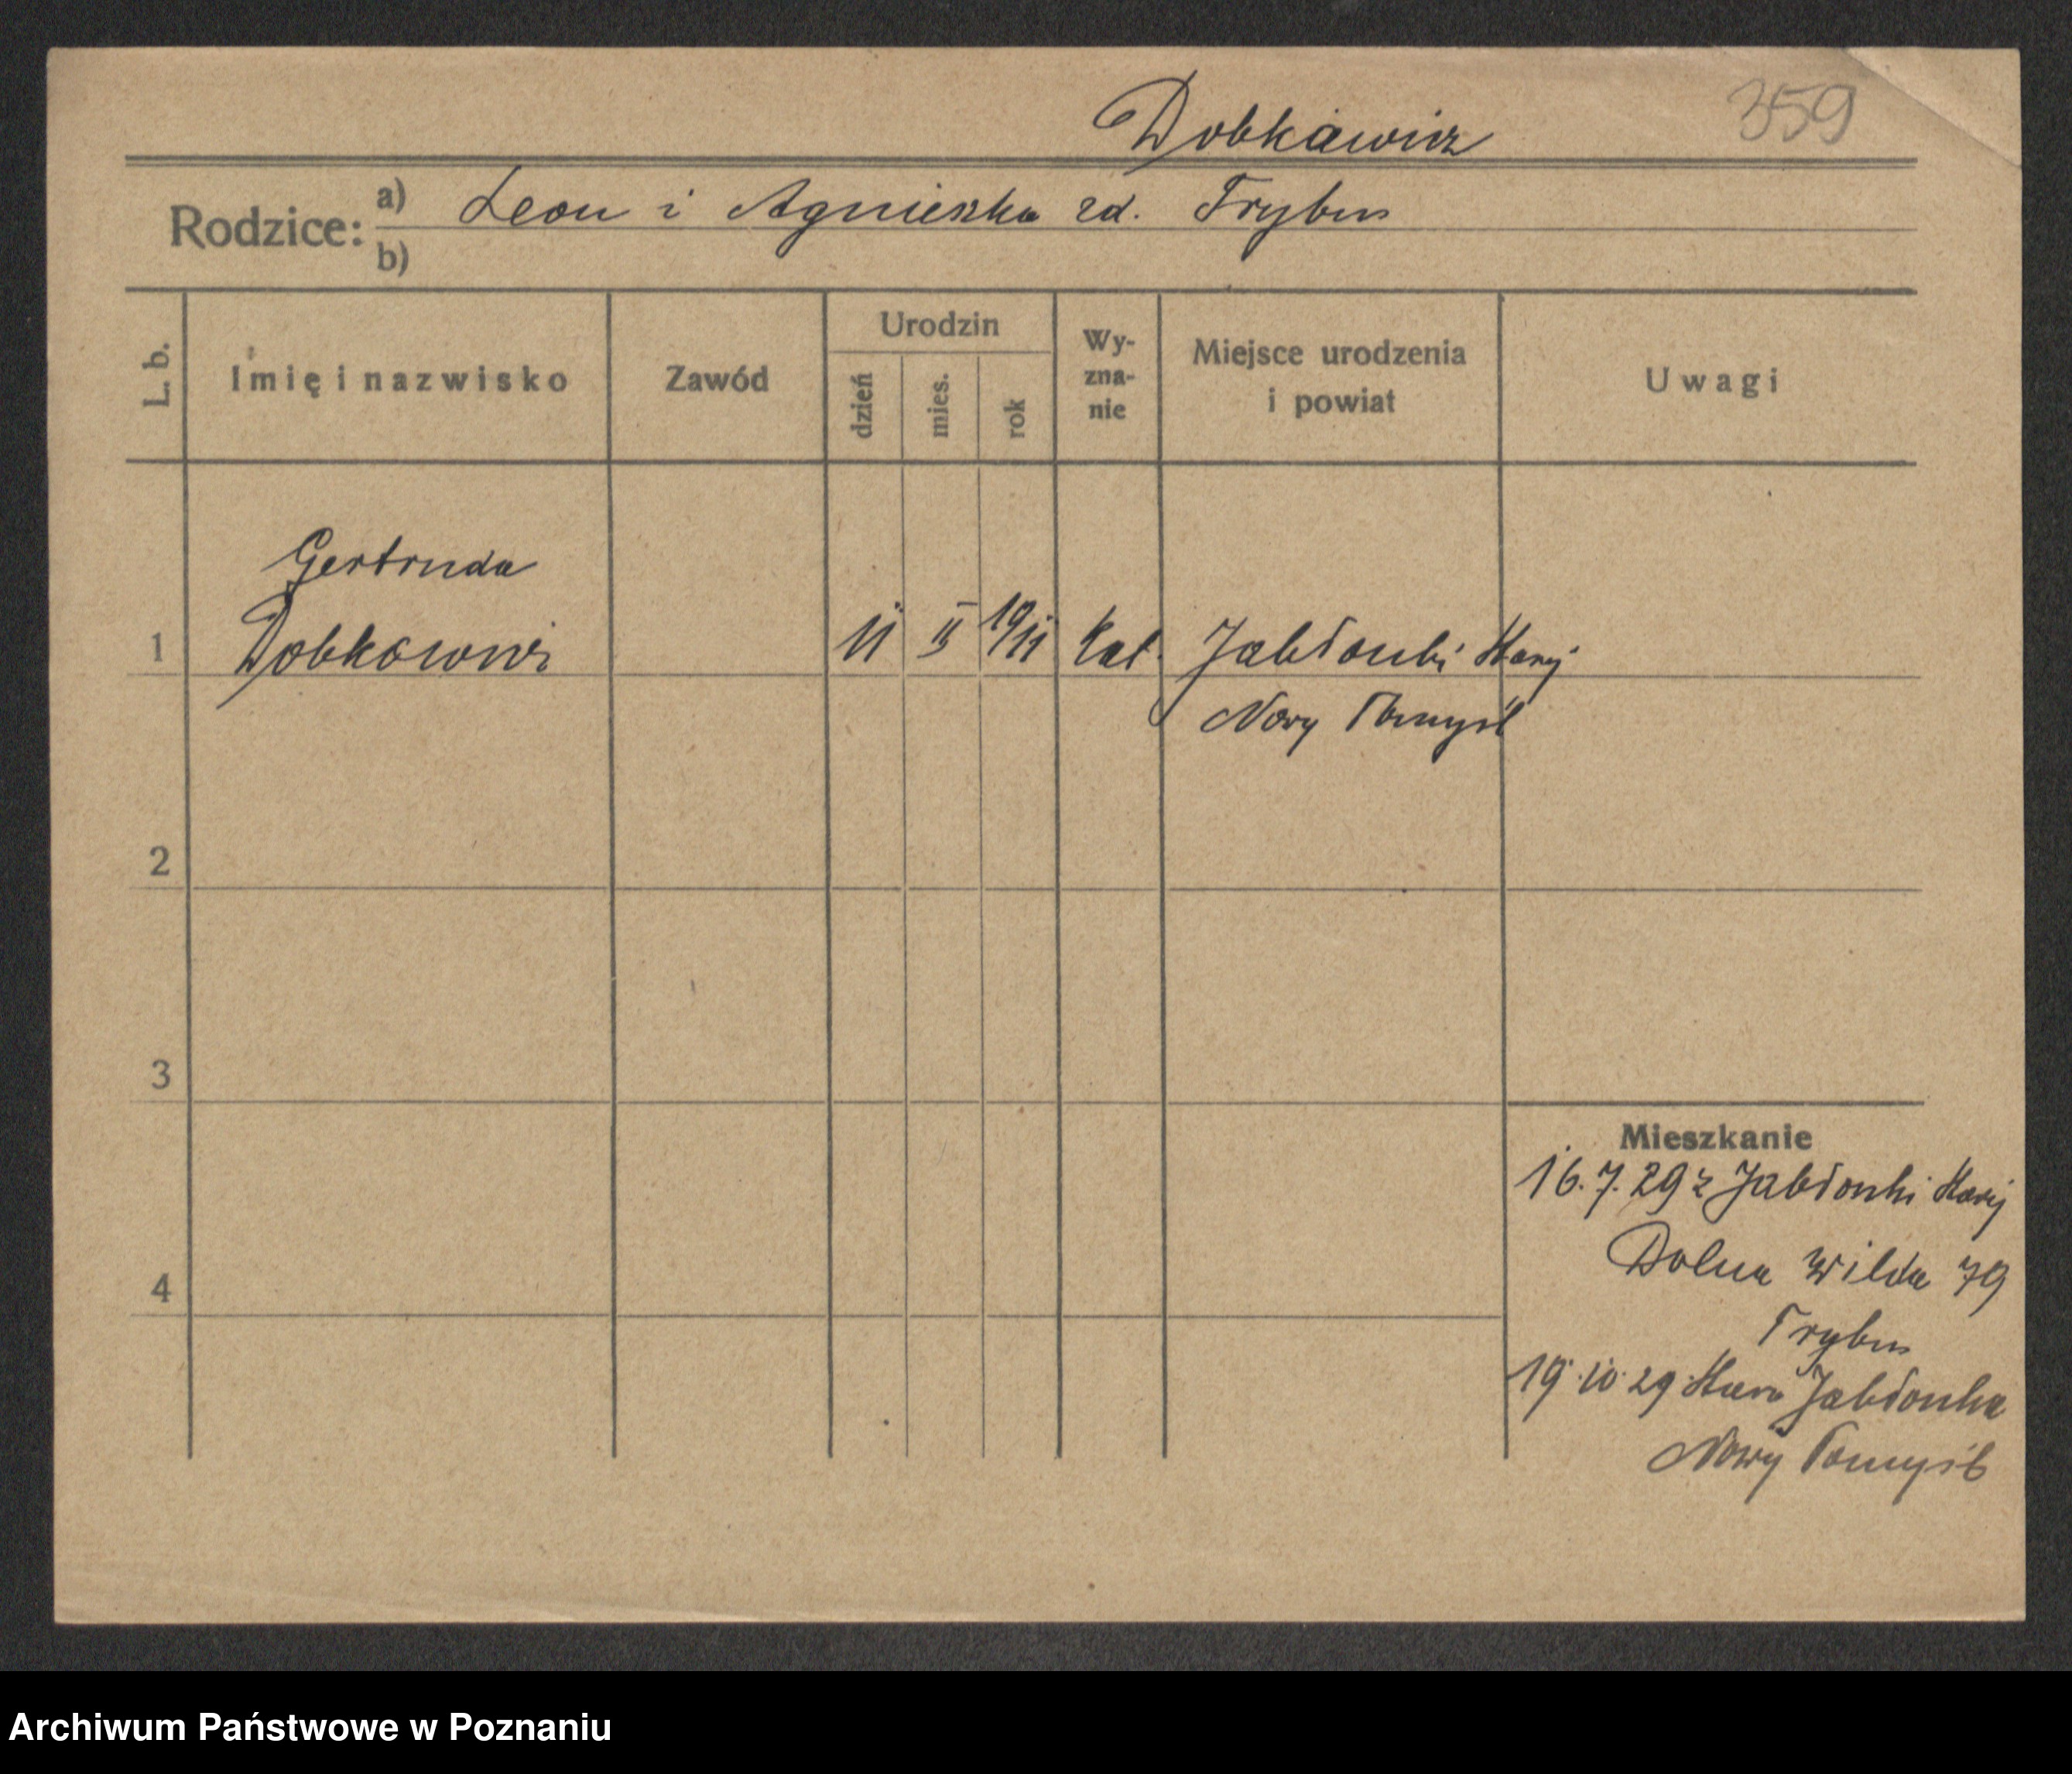 Dobkowicz 359
Rodzice: a) Leon i Agnieszka zd. Trybus
b)
L. b. Imię i nazwisko Zawód Urodzin dzień mies. rok Wy-zna-nie Miejsce urodzenia i powiat Uwagi
Gertruda
1 Dobkowicz 11 II 1911 kat. Jabłonki Starej
Nowy Tomyśl
2
3
Mieszkanie
16.7.29 z Jabłonki Starej
4 Dolna Wilda 79
Trybus
19.10.29 Stara Jabłonka
Nowy Tomyśl
Archiwum Państwowe w Poznaniu